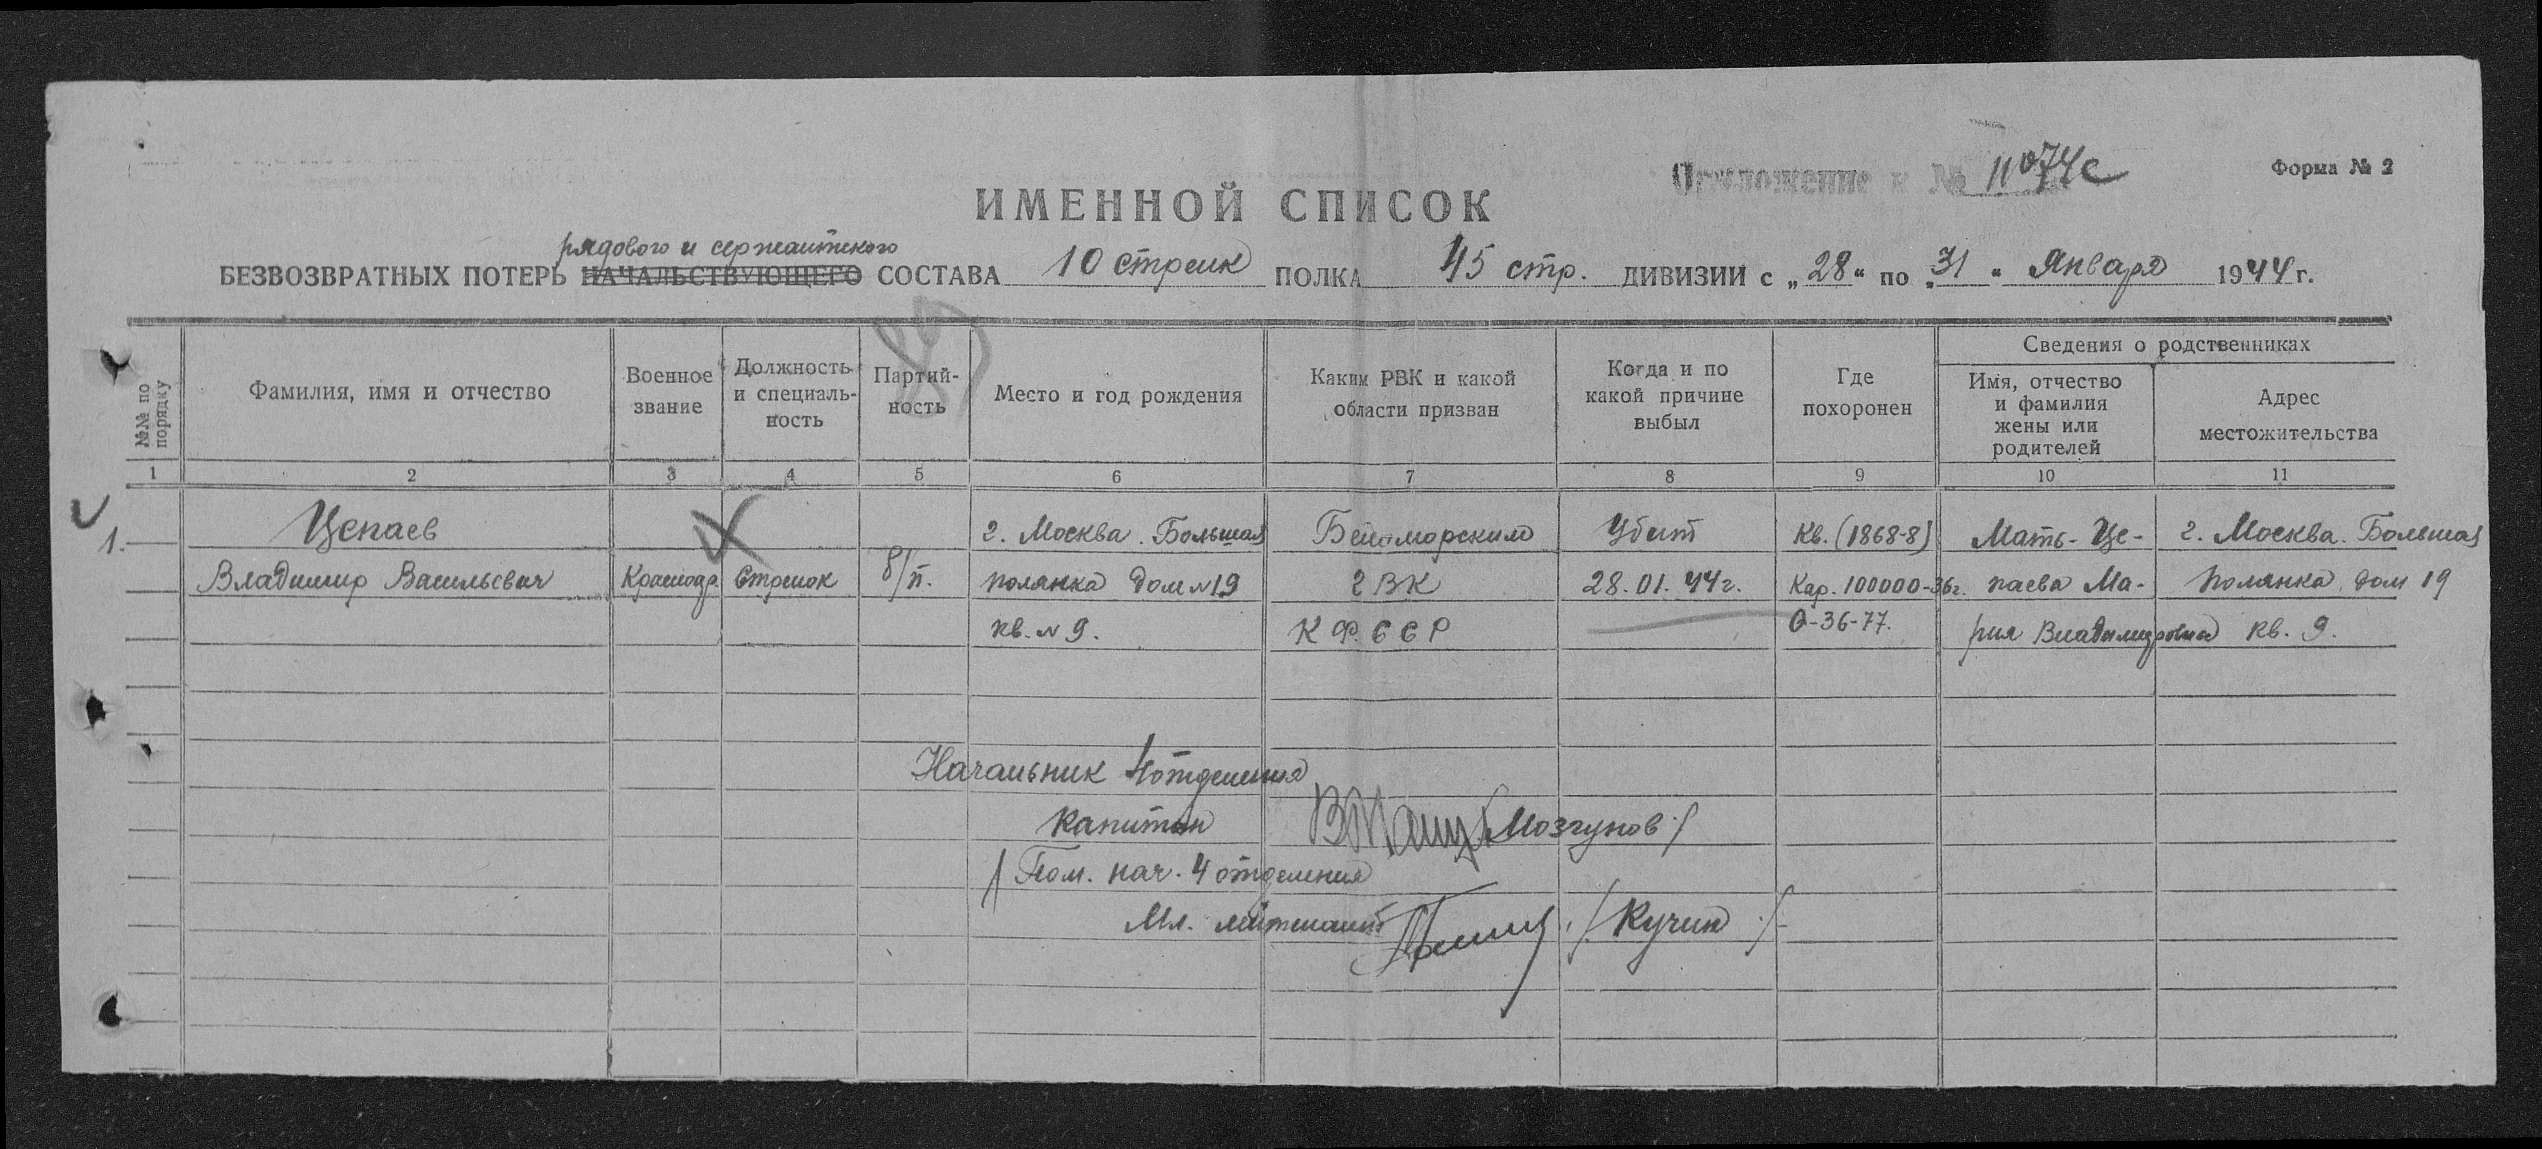 Приложение к № 11074с
Форма № 2
ИМЕННОЙ СПИСОК
рядового и сержантского
БЕЗВОЗВРАТНЫХ ПОТЕРЬ НАЧАЛЬСТВУЮЩЕГО СОСТАВА 10 стрелк ПОЛКА 45 стр. ДИВИЗИИ с „28“ по „31“ Января 1944 г.
№№ по порядку
Фамилия, имя и отчество
Военное
звание
Должность
и специаль-
ность
Партий-
ность
Место и год рождения
Каким РВК и какой
области призван
Когда и по
какой причине
выбыл
Где
похоронен
Сведения о родственниках
Имя, отчество
и фамилия
жены или
родителей
Адрес
местожительства
1 2 3 4 5 6 7 8 9 10 11
1. Цепаев г. Москва. Большая Беломорским Убит Кв. (1868-8) Мать- Це- г. Москва. Большая
Владимир Васильевич Красноар. Стрелок б/п. полянка дом №19 ГВК 28.01.44г. Кар. 100000-36г. паева Ма- Полянка, дом 19
кв. № 9. КФССР О-36-77. рия Владимировна кв. 9.
Начальник 4 отделения
Капитан /Мозгунов/
/Пом. нач. 4 отделения
Мл. лейтенант /Кучин/